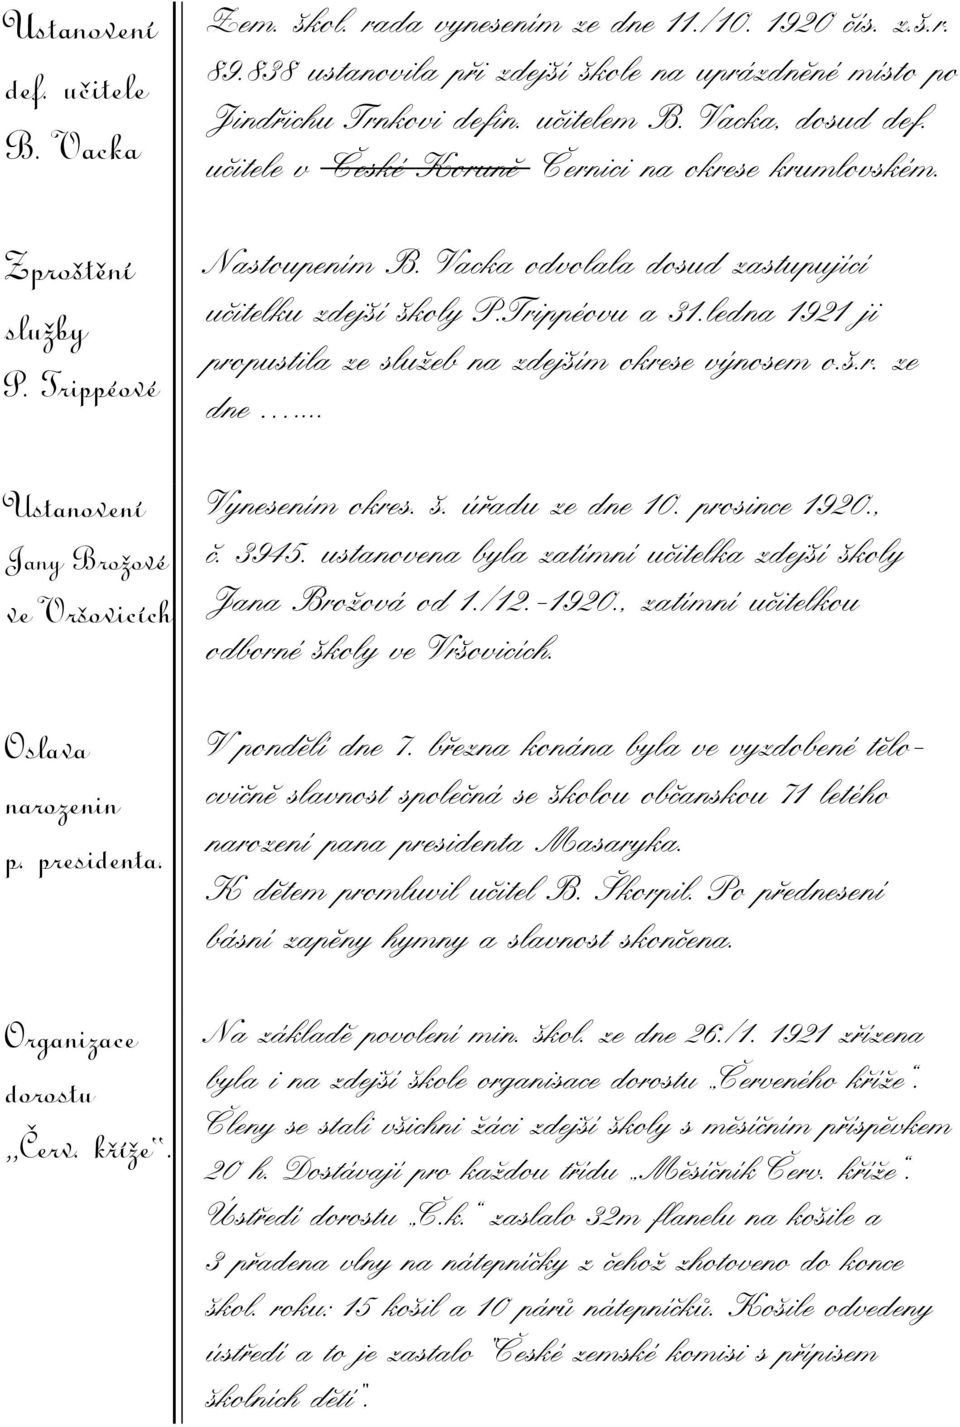 Ustanovení
def. učitele
B. Vacka
Zem. škol. rada vynesením ze dne 11./10. 1920 čís. z.š.r.
89.838 ustanovila při zdejší škole na uprázdněné místo po
Jindřichu Trnkovi defin. učitelem B. Vacka, dosud def.
učitele v České Koruně Černici na okrese krumlovském.
Zproštění
služby
P. Trippéové
Nastoupením B. Vacka odvolala dosud zastupující
učitelku zdejší školy P.Trippéovu a 31.ledna 1921 ji
propustila ze služeb na zdejším okrese výnosem o.š.r. ze
dne …....
Ustanovení
Jany Brožové
ve Vršovicích
Vynesením okres. š. úřadu ze dne 10. prosince 1920.,
č. 3945. ustanovena byla zatímní učitelka zdejší školy
Jana Brožová od 1./12.-1920., zatímní učitelkou
odborné školy ve Vršovicích.
Oslava
narozenin
p. presidenta.
V pondělí dne 7. března konána byla ve vyzdobené tělo-
cvičně slavnost společná se školou občanskou 71 letého
narození pana presidenta Masaryka.
K dětem promluvil učitel B. Škorpil. Po přednesení
básní zapěny hymny a slavnost skončena.
Organizace
dorostu
„Červ. kříže“.
Na základě povolení min. škol. ze dne 26./1. 1921 zřízena
byla i na zdejší škole organisace dorostu „Červeného kříže“.
Členy se stali všichni žáci zdejší školy s měsíčním příspěvkem
20 h. Dostávají pro každou třídu „Měsíčník Červ. kříže“.
Ústředí dorostu „Č.k.“ zaslalo 32m flanelu na košile a
3 přadena vlny na nátepníčky z čehož zhotoveno do konce
škol. roku: 15 košil a 10 párů nátepníčků. Košile odvedeny
ústředí a to je zastalo "České zemské komisi s přípisem
školních dětí".